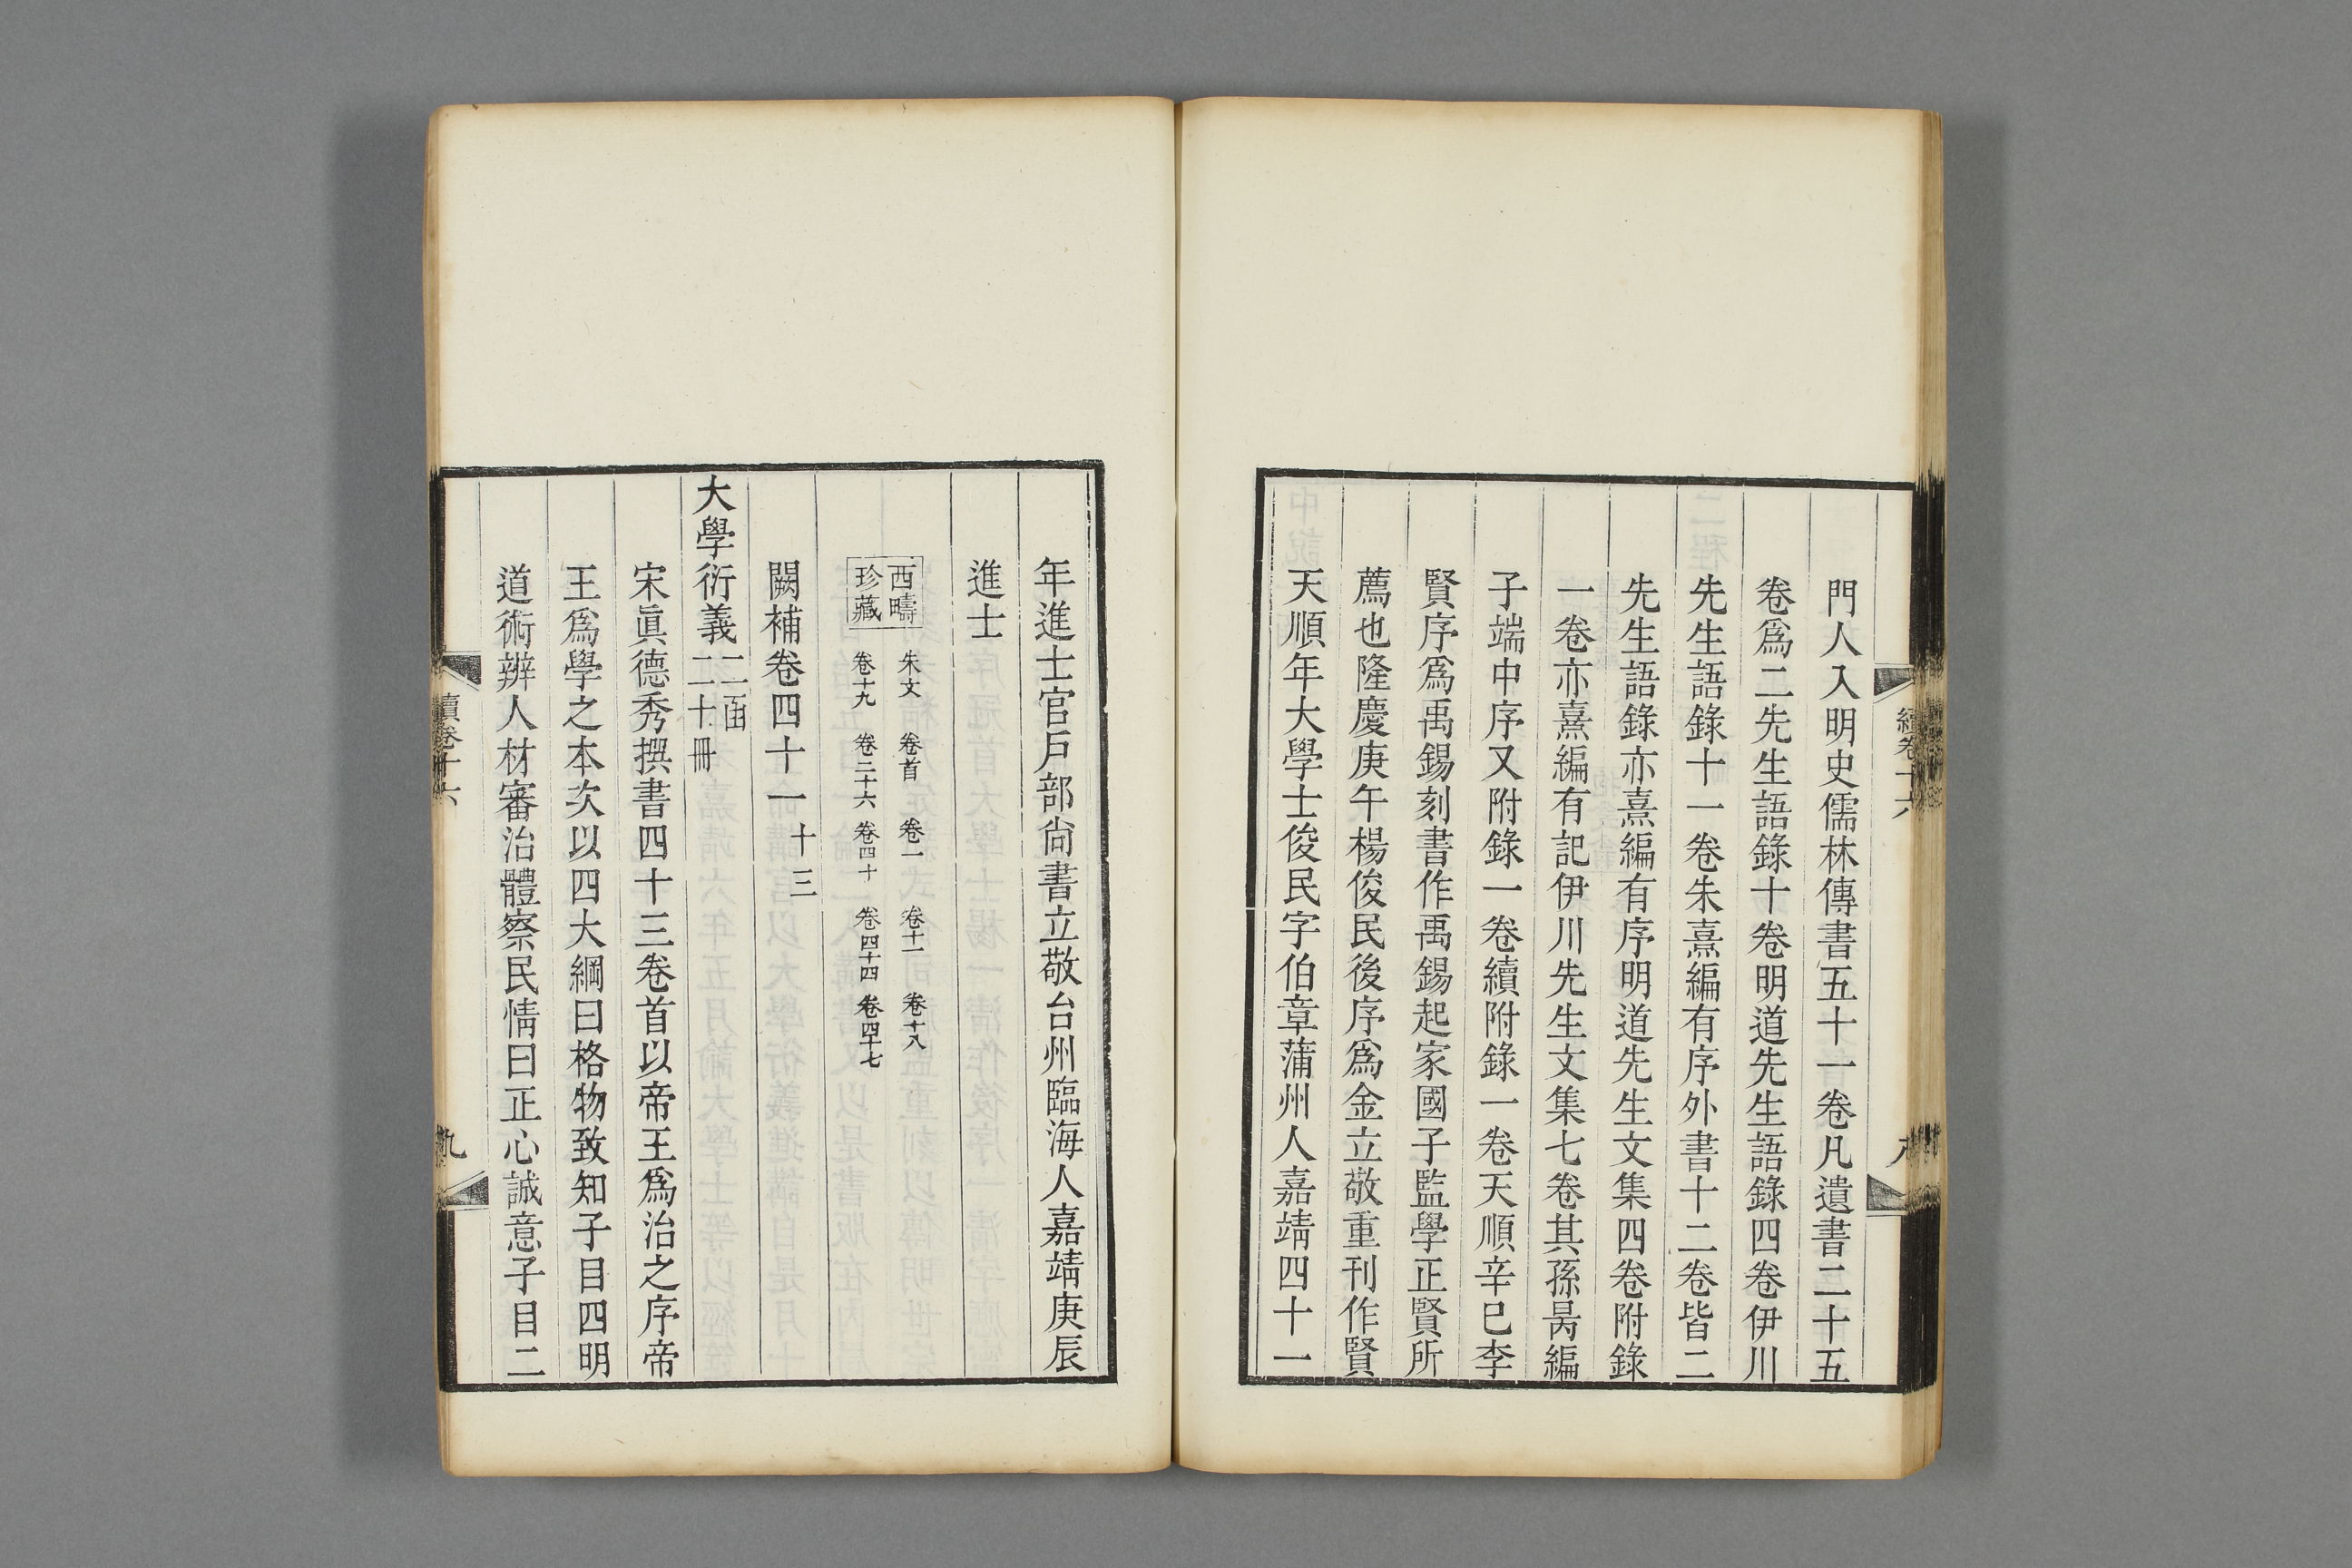 門人入明史儒林傳書五十一卷凡遺書二十五
卷爲二先生語錄十卷明道先生語錄四卷伊川
先生語錄十一卷朱熹編有序外書十二卷皆二
先生語錄亦熹編有序明道先生文集四卷附錄
一卷亦熹編有記伊川先生文集七卷其孫昺編
子端中序又附錄一卷續附錄一卷天順辛巳李
賢序爲禹錫刻書作禹錫起家國子監學正賢所
薦也隆慶庚午楊俊民後序爲金立敬重刊作賢
天順年大學士俊民字伯章蒲州人嘉靖四十一
續卷十六
八
年進士官戶部尙書立敬台州臨海人嘉靖庚辰
進士
西疇
珍藏
朱文 卷首 卷一 卷十一 卷十八
卷十九 卷二十六 卷四十 卷四十四 卷四十七
闕補卷四十一 十三
大學衍義 二函
二十冊
宋眞德秀撰書四十三卷首以帝王爲治之序帝
王爲學之本次以四大綱曰格物致知子目四明
道術辨人材審治體察民情曰正心誠意子目二
續卷十六
九